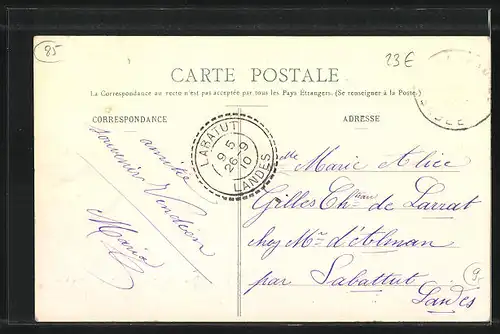 85
23€
CARTE POSTALE
La Correspondance au recto n'est pas acceptée par tous les Pays Étrangers. (Se renseigner à la Poste.)
CORRESPONDANCE
ADRESSE
LABATUT
9 5
26 - 9
10
LANDES
amitiés
souvenir Vendéen
Maria
elle Marie Alice
Gilles Ch de Larrat
chez Mr d'
par Labattut
Landes
9-